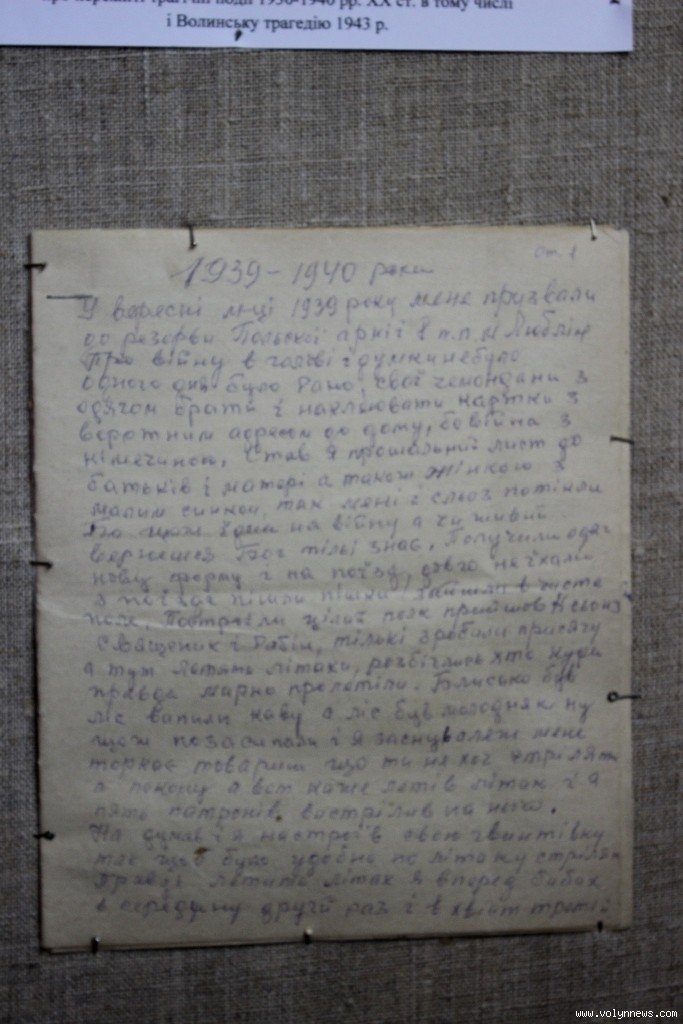 про пережиті трагічні події 1930-1940 рр. ХХ ст. в тому числі
і Волинську трагедію 1943 р.
ст 1
1939 – 1940 роки
У вересні м-ці 1939 року мене призвали
до резерви Польскої армії 8 п.п. м Люблін
Про війну в голові і думки небуло
одного дня було дано свої чемондани з
одягом брати і наклеювати картки з
воротним адресом до дому, бо війна з
німечиною. Став я прощальний лист до
батьків і матері а також жінкою з
малим синком, так мені і сльоз потікли
на війну а чи живий
вернешся Бог тількі знає. Получили одяг
нову форму і на поїзд, довго не їхали
з поїзда пішли пішки зайшли в чисте
поле. Построїли цілий полк прийшов Ксьонз
Священик і Рабін, тількі зробили присягу
а тут летять літаки, розбіглись хто куди
правда марно пролетіли. Близько був
ліс варили каву а ліс був молодняк ну
щож позасипали і я заснув але ж мене
торкає товариш що ти не хоч стрілять
а покощо а вот каже летів літак і я
пять патронів вистрілив на него.
На думав і я настроїв свою гвинтівку
так щоб було удобно по літаку стрілят
правда летить літак я вперед бабах
в середину другій раз і в хвіст третій
www.volynnews.com